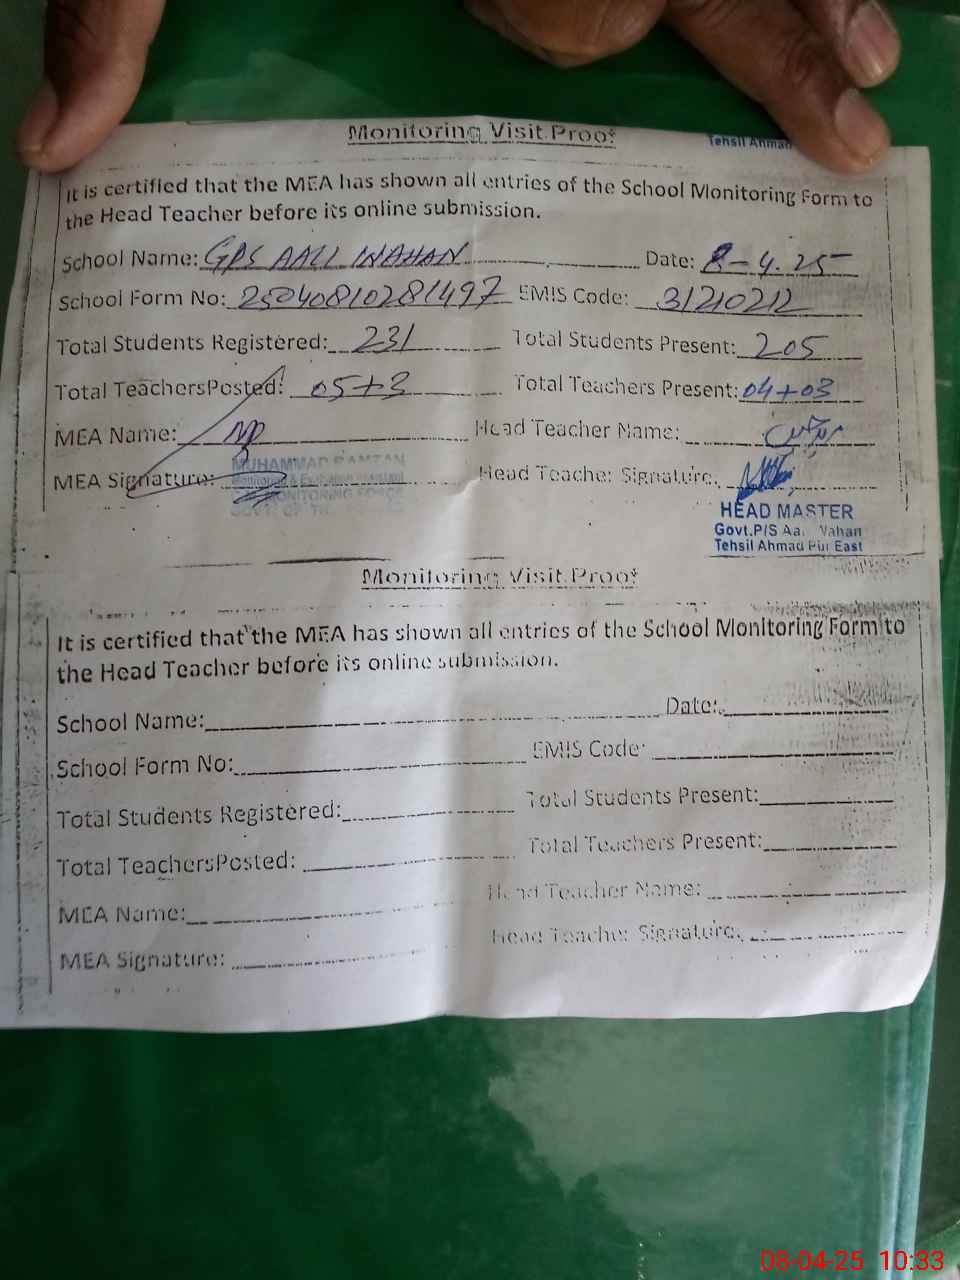 Monitoring Visit Proof
Tehsil Ahmad
It is certified that the MEA has shown all entries of the School Monitoring Form to
the Head Teacher before its online submission.
School Name: GPS AALI WAHAN Date: 8-4-25
School Form No: 25040810281497 EMIS Code: 31210212
Total Students Registered: 231 Total Students Present: 205
Total TeachersPosted: 05+3 Total Teachers Present: 04+03
MEA Name: Head Teacher Name:
MEA Signature: Head Teacher Signature:
MUHAMMAD RAMZAN
MONITORING FORCE
HEAD MASTER
Govt.P/S Aa Vahan
Tehsil Ahmad Pur East
Monitoring Visit Proof
It is certified that the MEA has shown all entries of the School Monitoring Form to
the Head Teacher before its online submission.
School Name: Date:
School Form No: EMIS Code:
Total Students Registered: Total Students Present:
Total TeachersPosted: Total Teachers Present:
MEA Name: Head Teacher Name:
MEA Signature: Head Teacher Signature:
08-04-25 10:33